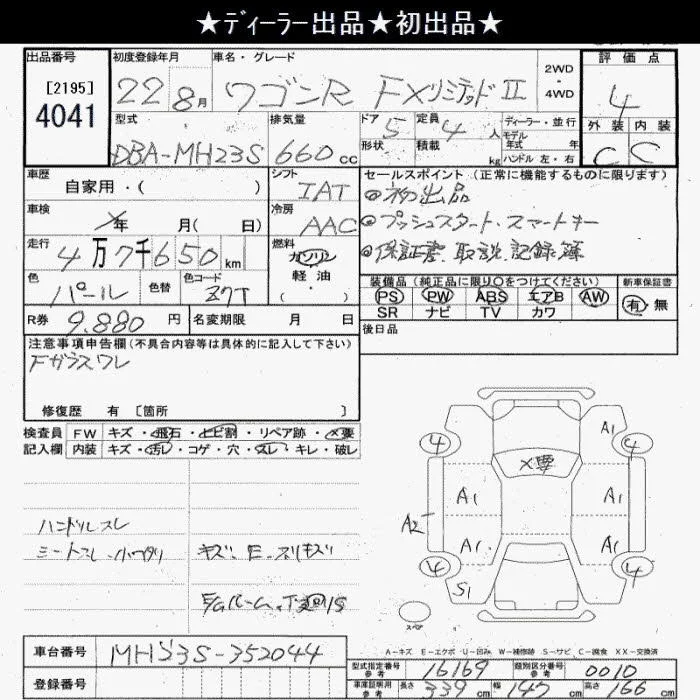 ★ディーラー出品★初出品★
出品番号 初度登録年月 車名・グレード 2WD・4WD 評価点
[2195] 4041 22 8月 ワゴンR FXリミテッドⅡ 4
型式 排気量 ドア 5 定員 4人 ディーラー・並行 外装 内装
DBA-MH23S 660cc 形状 積載 kg モデル年式 年 ハンドル 左・右 C C
車歴 シフト セールスポイント(正常に機能するものに限ります)
自家用・( ) IAT ◎初出品
車検 年 月(日) 冷房 AAC ◎プッシュスタート.スマートキー
走行 4万7千650km 燃料 ガソリン 軽油 ・( ) ◎保証書.取説.記録簿
色 パール 色替 色コード Z7T 装備品(純正品に限り○をつけてください) 新車保証書
PS PW ABS エアB AW 有・無
SR ナビ TV カワ
R券 9.880円 名変期限 月 日 後日品
注意事項申告欄(不具合内容等は具体的に記入して下さい)
Fガラスワレ
修復歴 有 [箇所 ]
検査員 FW キズ・飛石・ヒビ割・リペア跡・×要
記入欄 内装 キズ・汚レ・コゲ・穴・スレ・キレ・破レ
ハンドルスレ
シートスレ.
キズ.E.スリキズ
A1
4 4
×要
A1 A1
A2
A1 A1
4 4
S1
スペア
A-キズ E-エクボ U-凹み W-補修跡 S-サビ C-腐食 XX-交換済
車台番号 MH23S-352044
登録番号
型式指定番号 参考 16169 類別区分番号 参考 0010
車庫証明用 参考 長さ 339cm 幅 147cm 高さ 166cm